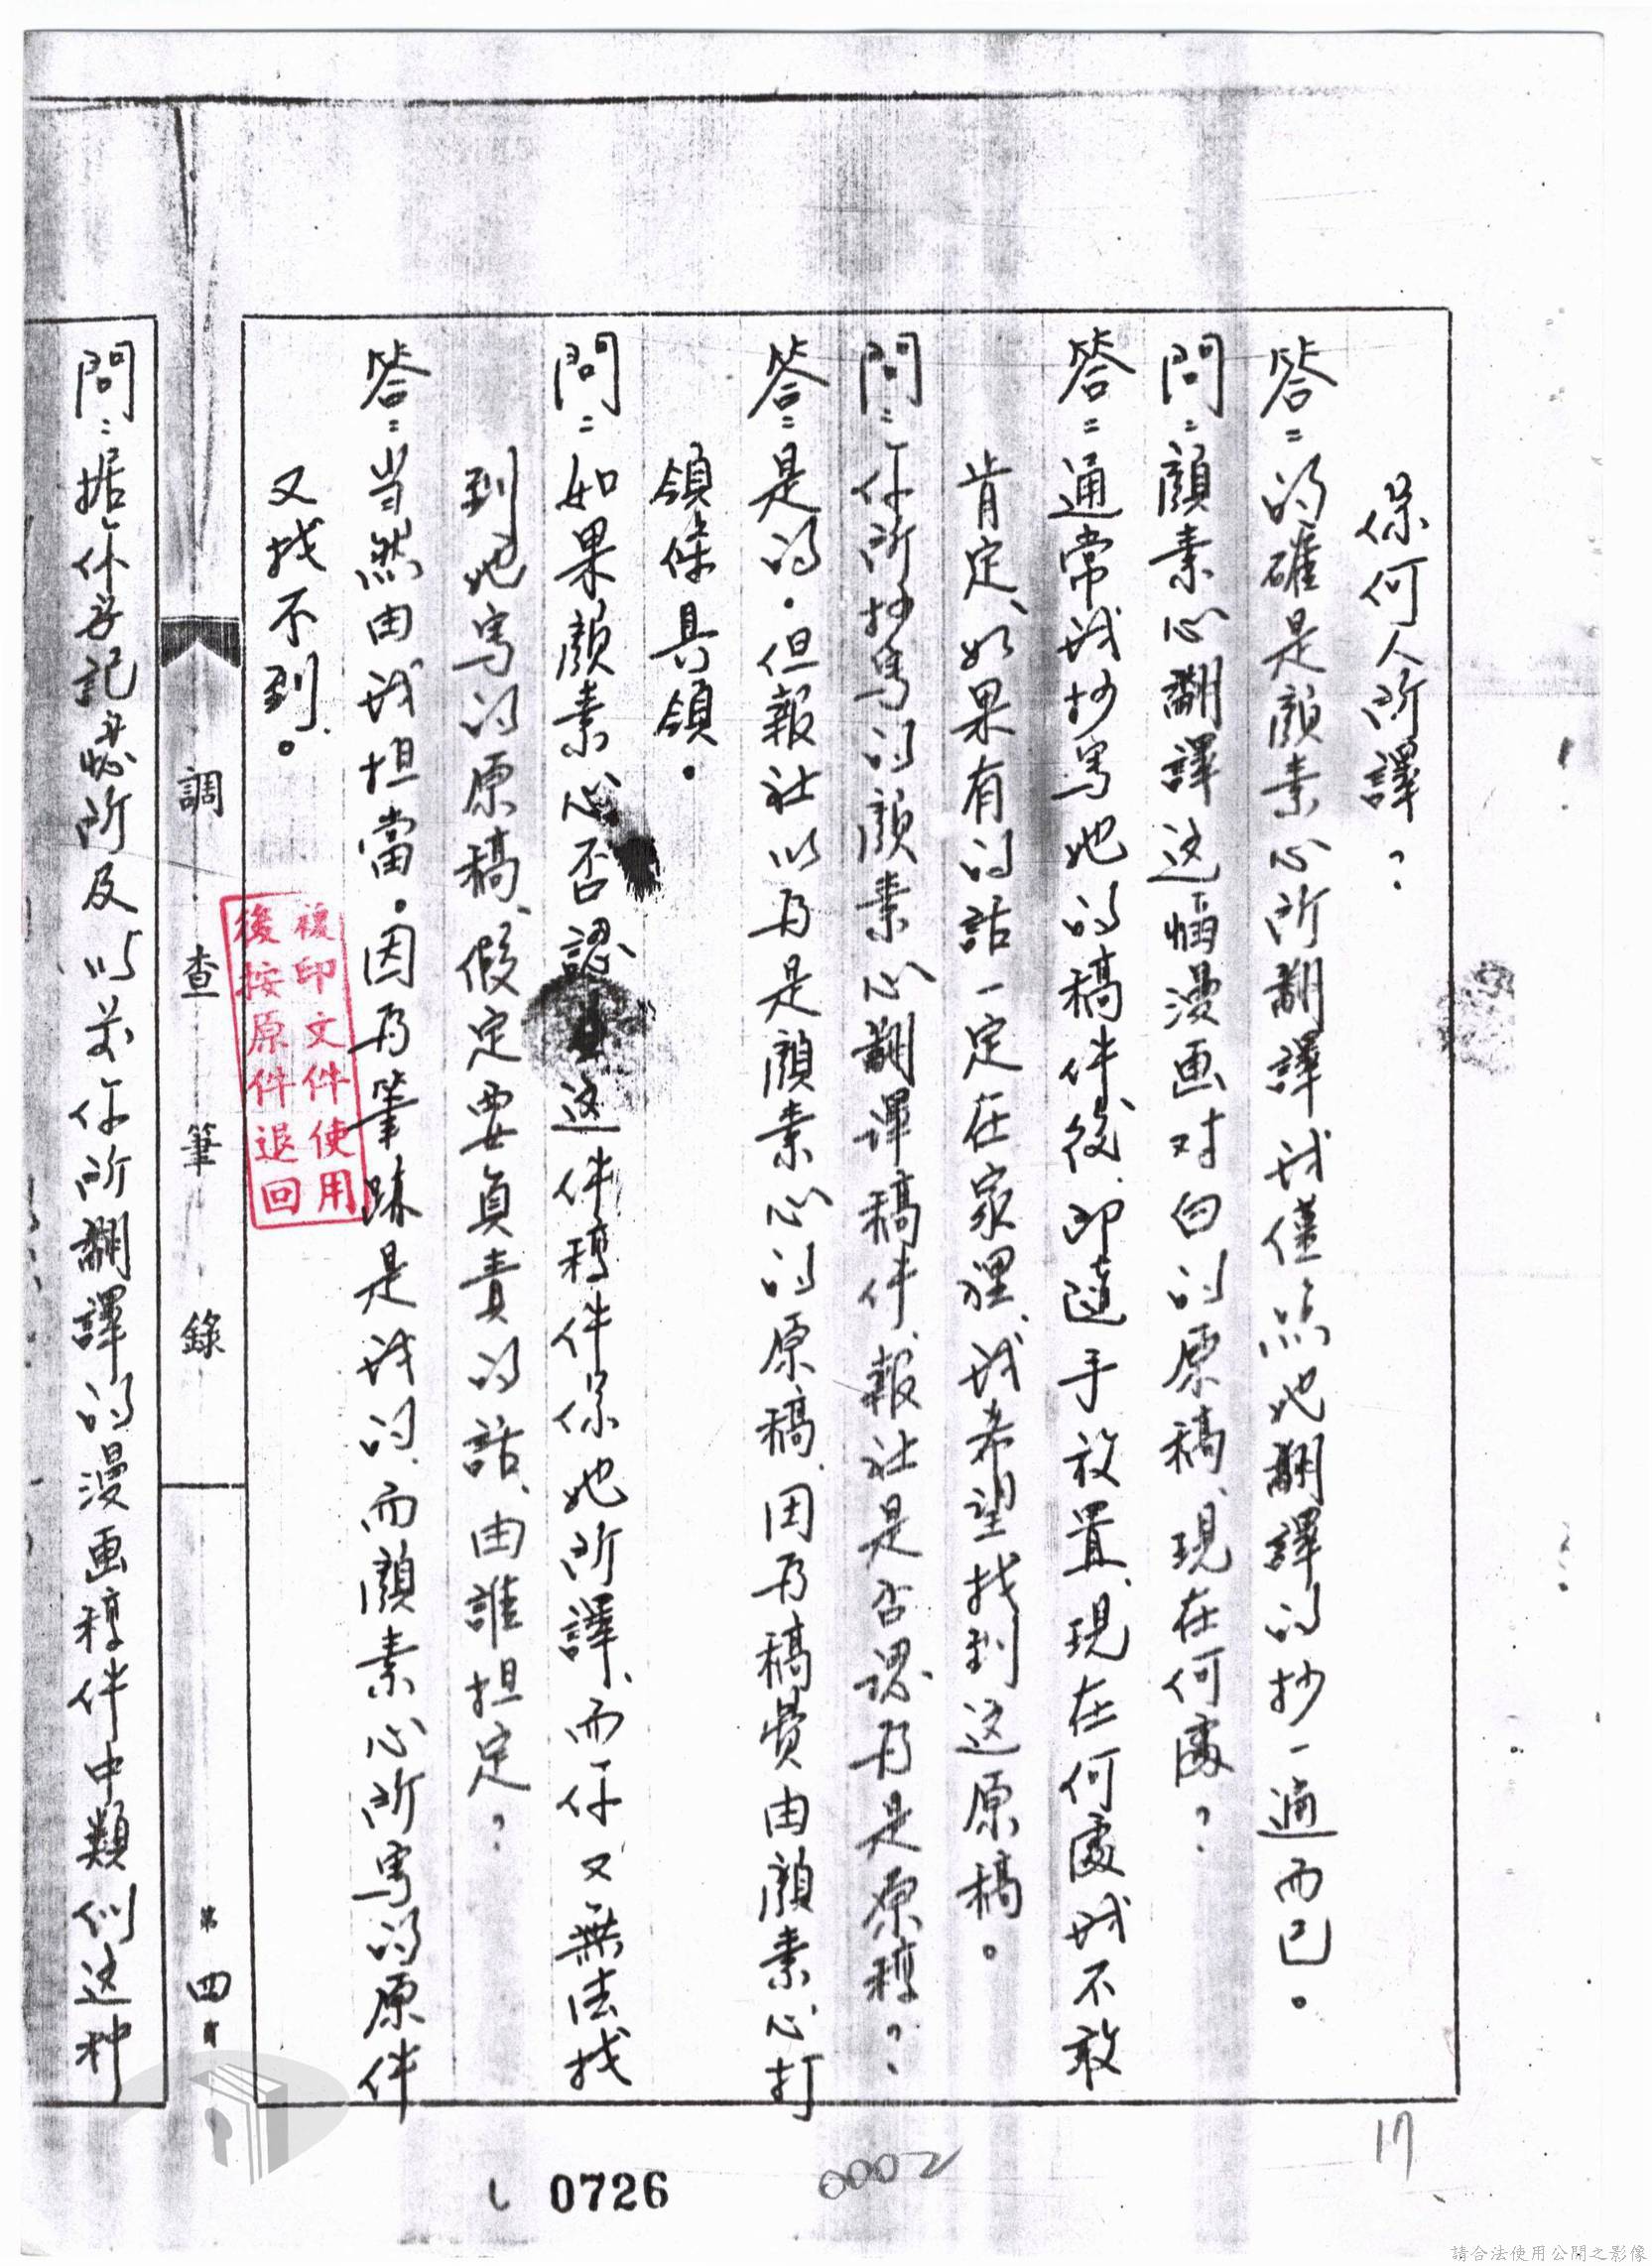 係何人所譯？
答：的確是顏素心所翻譯我僅照她翻譯的抄一遍而已。
問：顏素心翻譯这幅漫画对白的原稿、現在何處？
答：通常我抄写她的稿件後、即隨手放置、現在何處我不敢
肯定、如果有的話一定在家裡、我希望找到这原稿。
問：你所抄写的顏素心翻譯稿件、報社是否認為是原稿？
答：是的。但報社以為是顏素心的原稿、因為稿費由顏素心打
領條具領。
問：如果顏素心否認这件稿件係她所譯、而你又無法找
到她写的原稿、假定要負責的話、由誰担定？
答：当然由我担當。因為筆跡是我的、而顏素心所写的原件
又找不到。
複印文件使用
後按原件退回
調查筆錄
第四頁
問：据你各記憶所及以前你所翻譯的漫画稿件中類似这种
17
0726
0002
請合法使用公開之影像